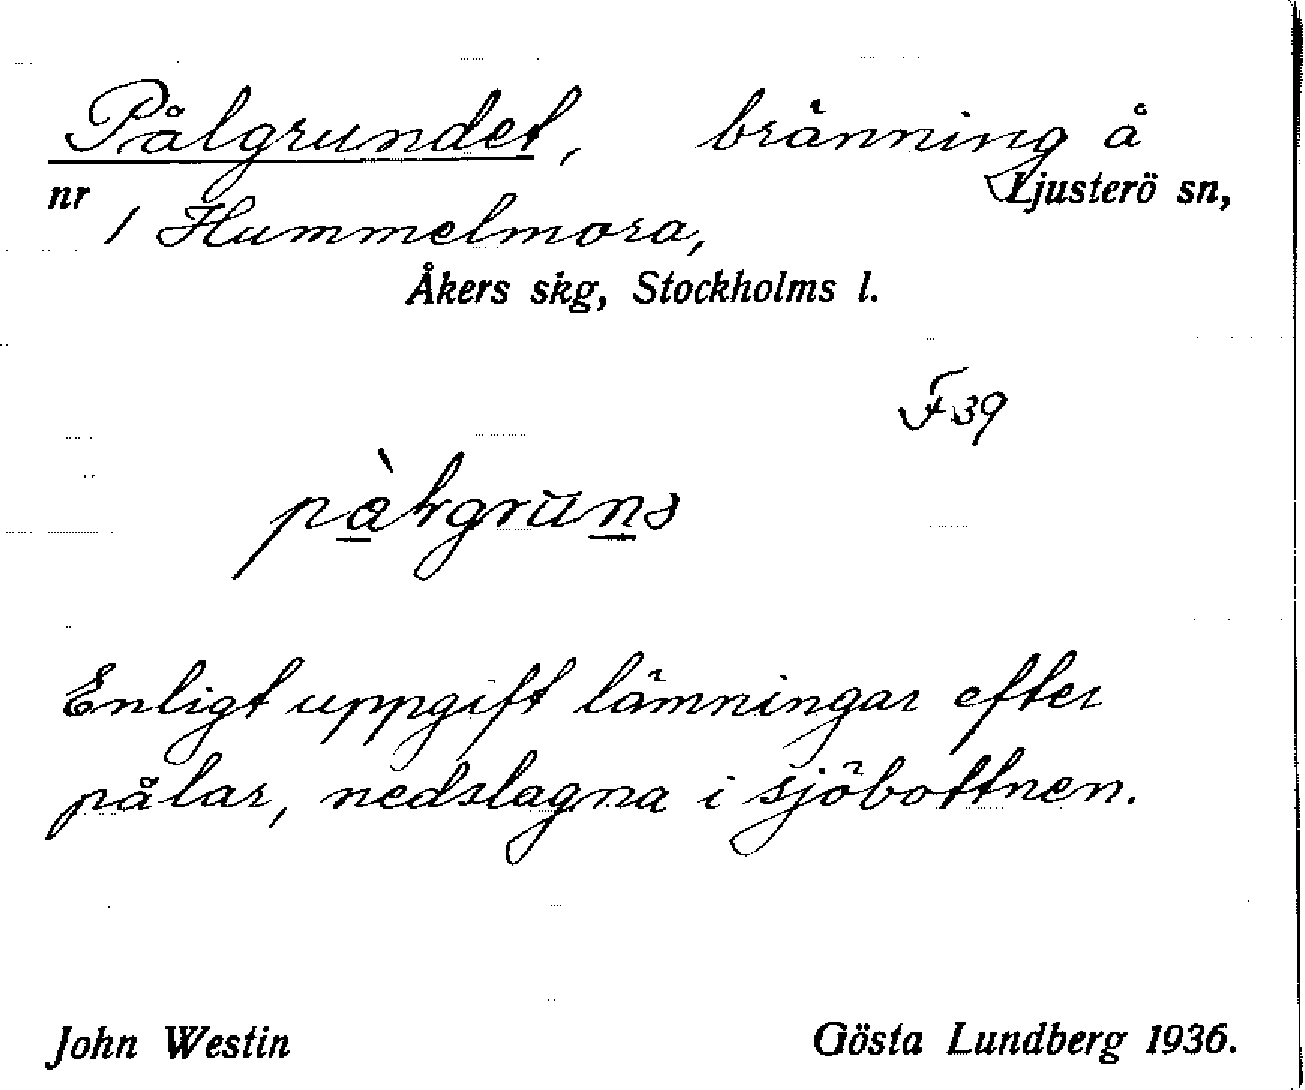 Pålgrundet, bränning å
Ljusterö sn,
nr 1 Hummelmora,
Åkers skg, Stockholms l.
F 39
Enligt uppgift lämningar efter
pålar, nedslagna i sjöbottnen.
John Westin Gösta Lundberg 1936.